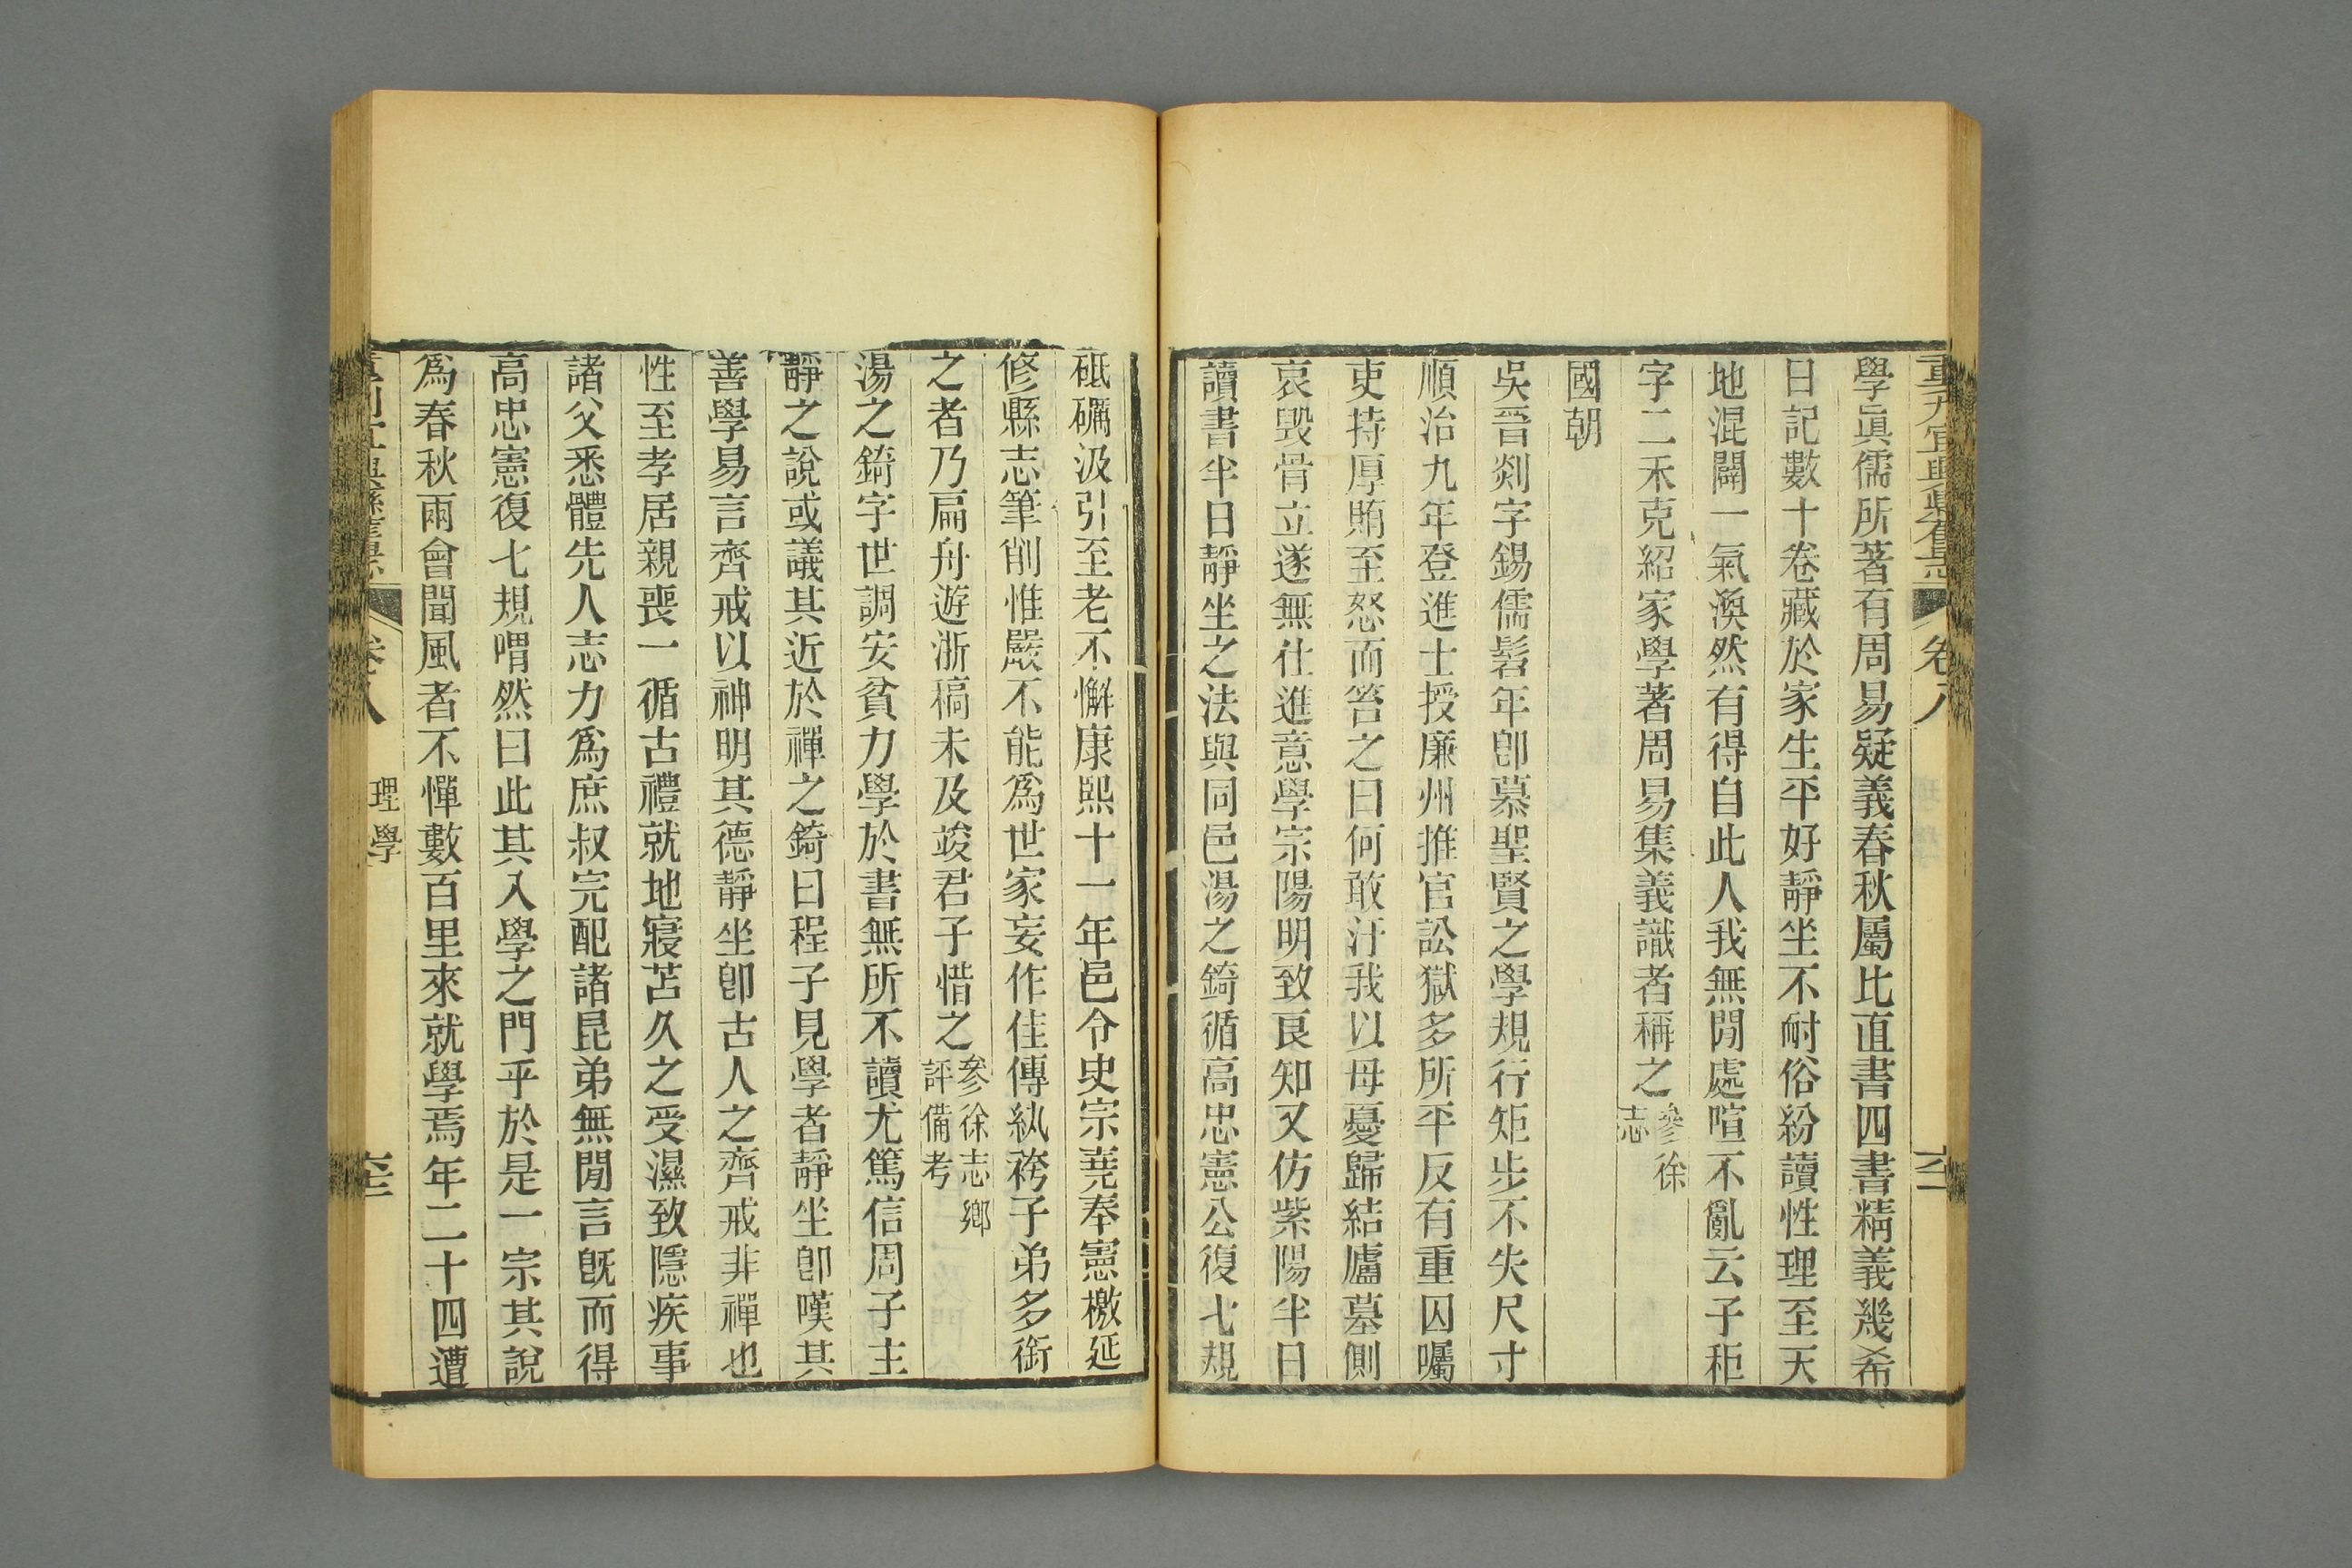 學眞儒所著有周易疑義春秋屬比直書四書精義幾希
日記數十卷藏於家生平好靜坐不耐俗紛讀性理至天
地混闢一氣渙然有得自此人我無閒處喧不亂云子秬
字二禾克紹家學著周易集義識者稱之參徐
志
國朝
吳晉剡字錫儒髫年卽慕聖賢之學規行矩步不失尺寸
順治九年登進士授廉州推官訟獄多所平反有重囚囑
吏持厚賄至怒而笞之曰何敢汙我以母憂歸結廬墓側
哀毀骨立遂無仕進意學宗陽明致良知又仿紫陽半日
讀書半日靜坐之法與同邑湯之錡循高忠憲公復七規
砥礪汲引至老不懈康熙十一年邑令史宗堯奉憲檄延
修縣志筆削惟嚴不能爲世家妄作佳傳紈袴子弟多銜
之者乃扁舟遊浙稿未及竣君子惜之參徐志鄉
評備考
湯之錡字世調安貧力學於書無所不讀尤篤信周子主
靜之說或議其近於禪之錡曰程子見學者靜坐卽嘆其
善學易言齊戒以神明其德靜坐卽古人之齊戒非禪也
性至孝居親喪一循古禮就地寢苫久之受濕致隱疾事
諸父悉體先人志力爲庶叔完配諸昆弟無閒言旣而得
高忠憲復七規喟然曰此其入學之門乎於是一宗其說
爲春秋兩會聞風者不憚數百里來就學焉年二十四遭
卷八
理學